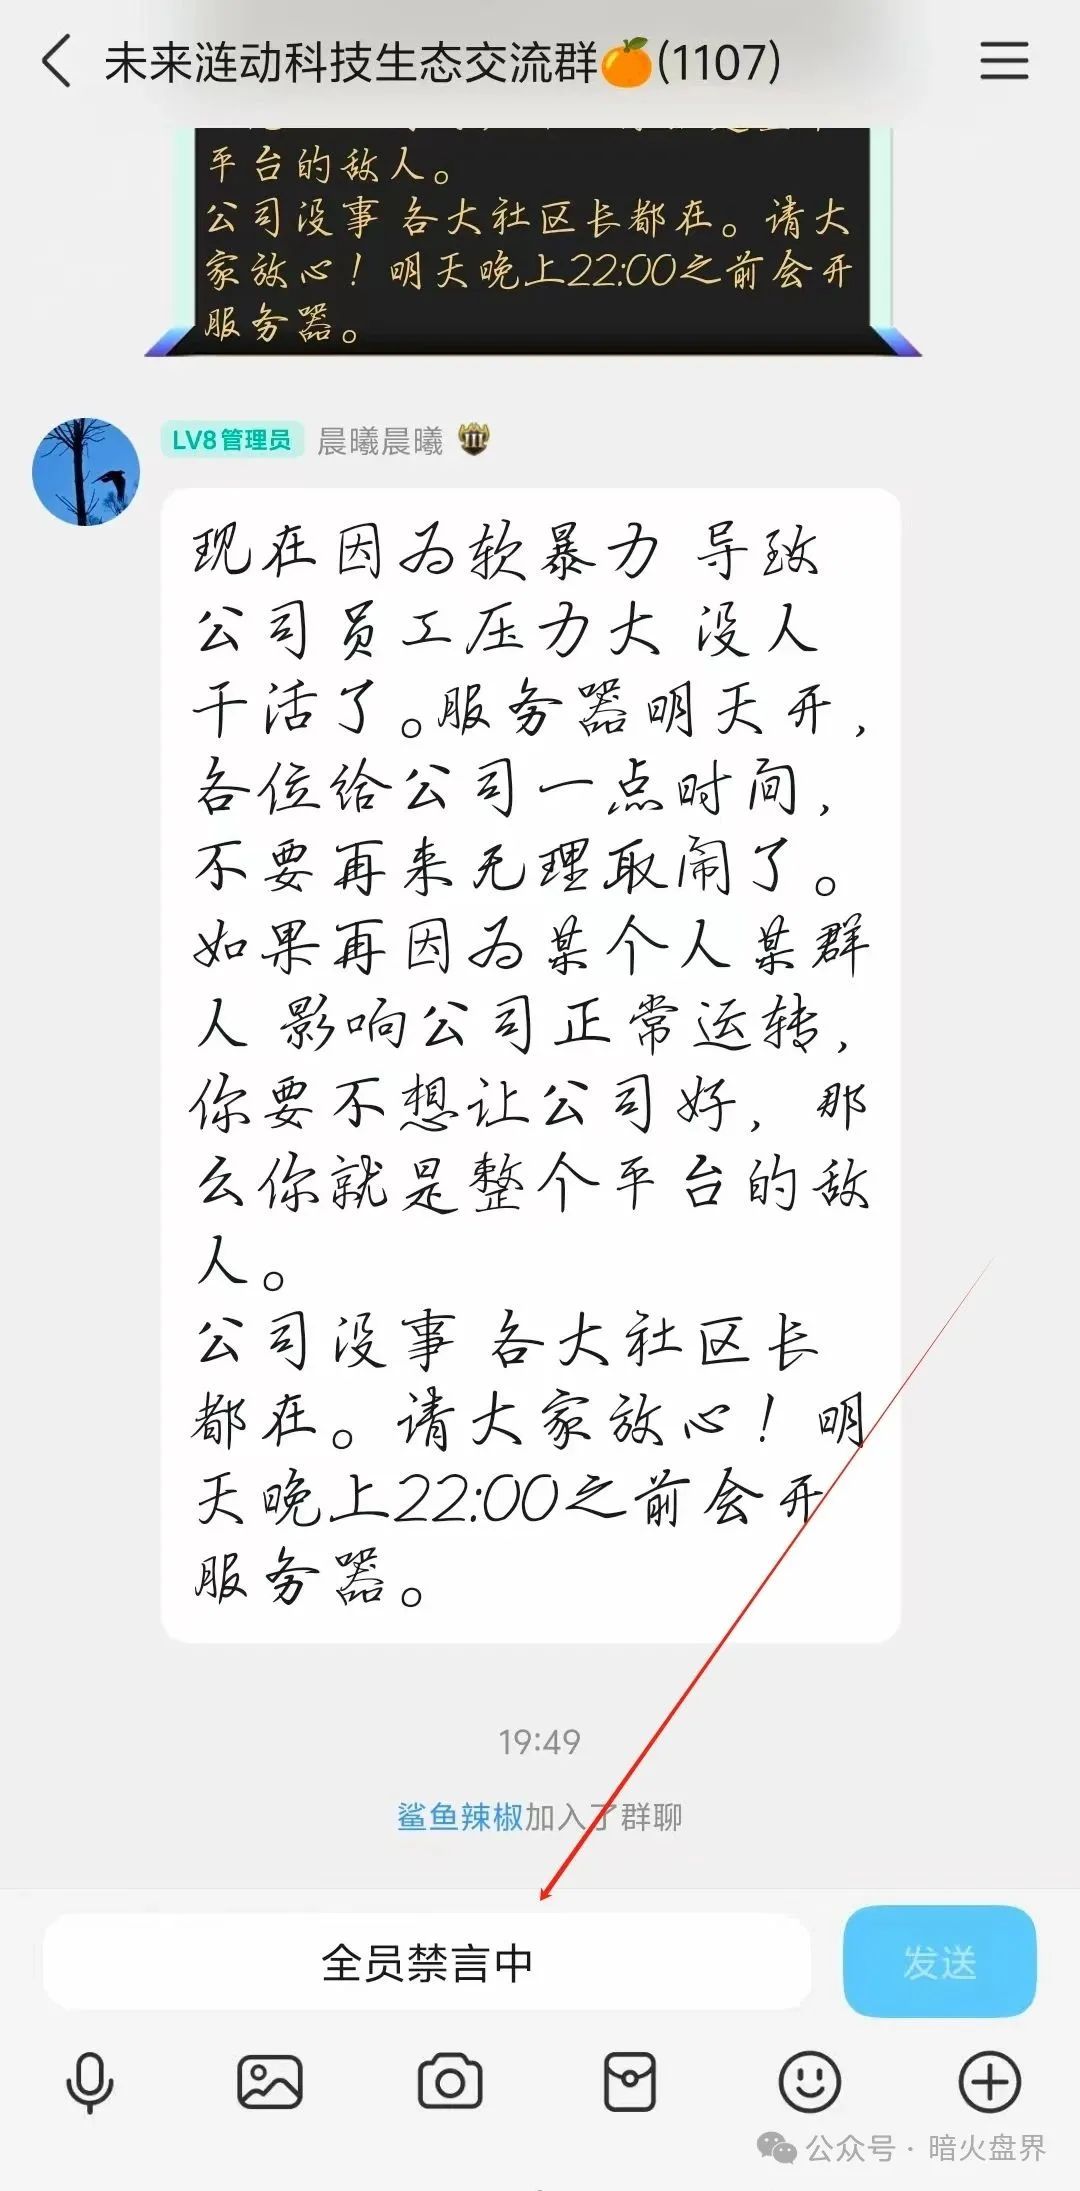 未来涟动科技生态交流群🍊(1107)
平台的敌人。
公司没事 各大社区长都在。请大
家放心！明天晚上22:00之前会开
服务器。
LV8管理员 晨曦晨曦
现在因为软暴力 导致
公司员工压力大 没人
干活了。服务器明天开，
各位给公司一点时间，
不要再来无理取闹了。
如果再因为某个人某群
人 影响公司正常运转，
你要不想让公司好，那
么你就是整个平台的敌
人。
公司没事 各大社区长
都在。请大家放心！明
天晚上22:00之前会开
服务器。
19:49
鲨鱼辣椒加入了群聊
全员禁言中
发送
公众号·暗火盘界